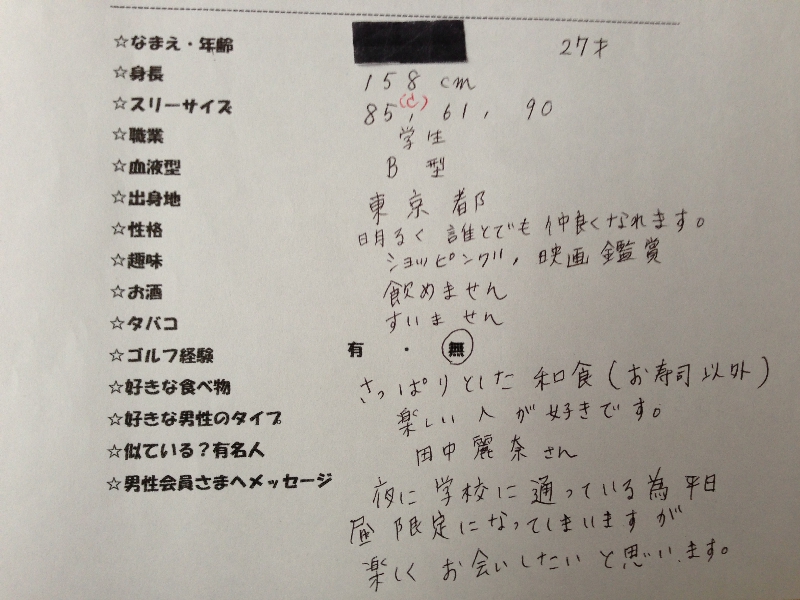 ☆なまえ・年齢 27才
☆身長 158 cm
☆スリーサイズ 85(d), 61, 90
☆職業 学生
☆血液型 B 型
☆出身地 東京都
☆性格 明るく 誰とでも 仲良くなれます。
☆趣味 ショッピング, 映画鑑賞
☆お酒 飲めません
☆タバコ すいません
☆ゴルフ経験 有 ・ 無
☆好きな食べ物 さっぱりとした 和食 (お寿司以外)
☆好きな男性のタイプ 楽しい人が好きです。
☆似ている?有名人 田中麗奈さん
☆男性会員さまへメッセージ 夜に学校に通っている為平日
昼限定になってしまいますが
楽しくお会いしたいと思います。